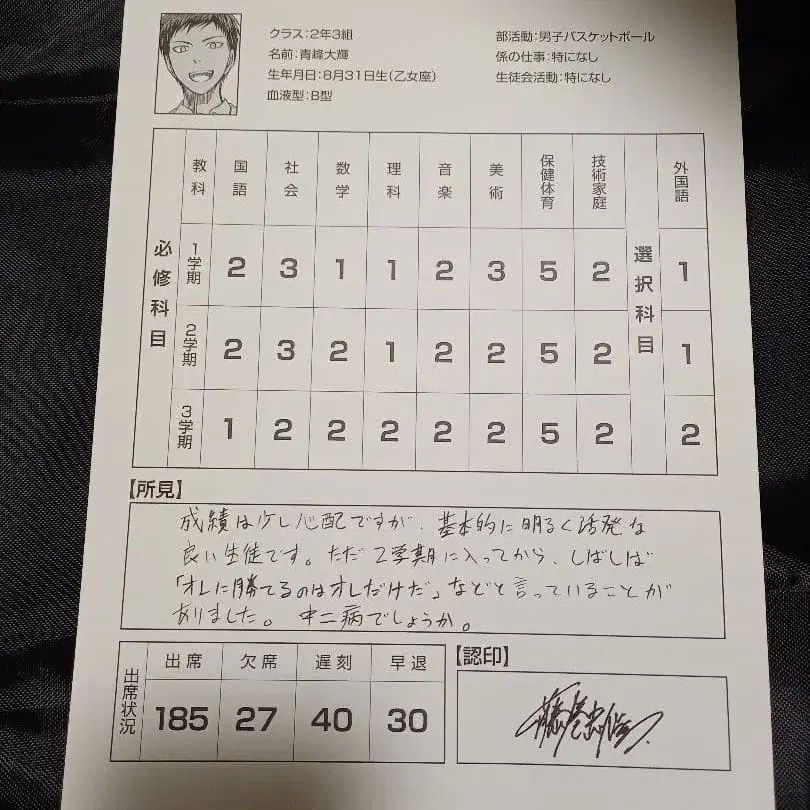 クラス:2年3組
名前:青峰大輝
生年月日:8月31日生(乙女座)
血液型:B型
部活動:男子バスケットボール
係の仕事:特になし
生徒会活動:特になし
必修科目 教科 国語 社会 数学 理科 音楽 美術 保健体育 技術家庭 選択科目 外国語
1学期 2 3 1 1 2 3 5 2 1
2学期 2 3 2 1 2 2 5 2 1
3学期 1 2 2 2 2 2 5 2 2
【所見】
成績は少し心配ですが、基本的に明るく活発な
良い生徒です。ただ2学期に入ってから、しばしば
「オレに勝てるのはオレだけだ」などと言っていることが
ありました。 中二病でしょうか。
出席状況 出席 欠席 遅刻 早退
185 27 40 30
【認印】
藤巻忠俊